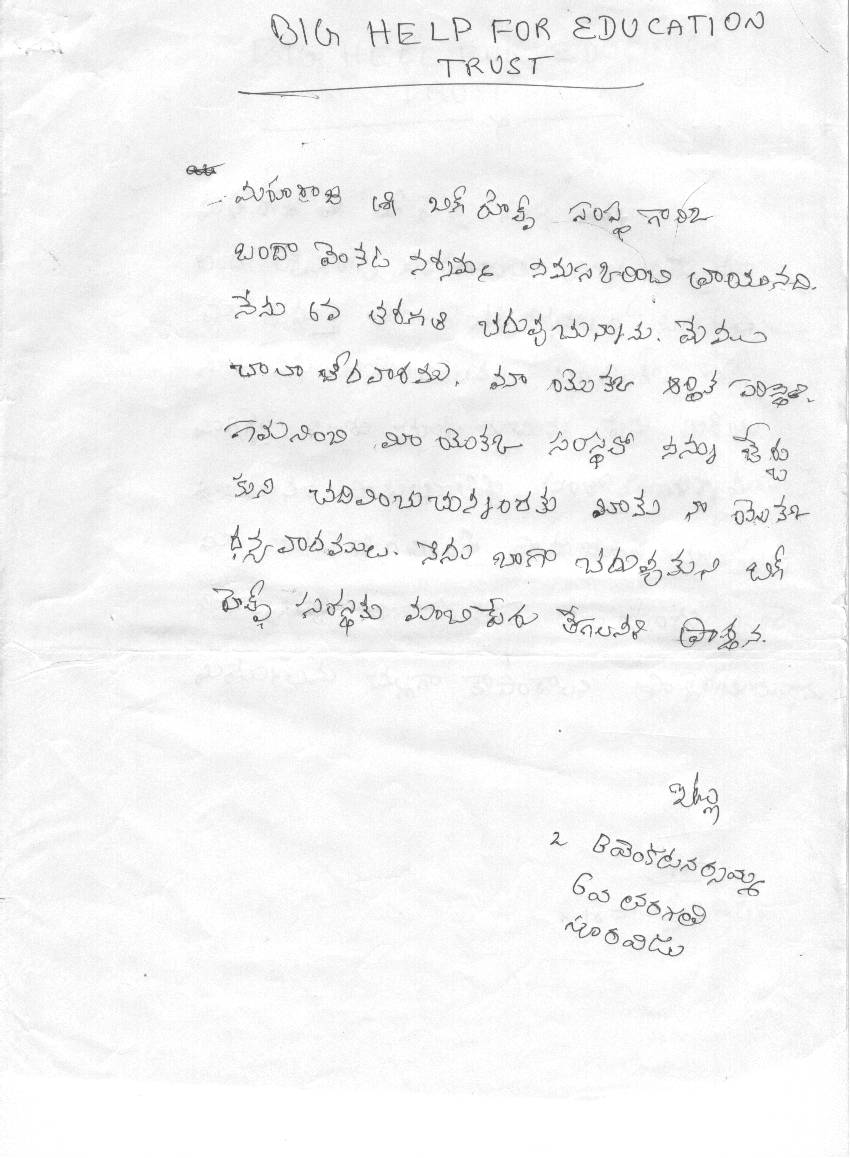 BIG HELP FOR EDUCATION
TRUST
మహారాజ శ్రీ బిగ్ హెల్ప్ సంస్థ గారికి
బందా వెంకట నర్సమ్మ నమస్కరించి వ్రాయునది.
నేను 6వ తరగతి చదువుచున్నాను. మేము
చాలా బీదవారము. మా యొక్క ఆర్థిక పరిస్థితి.
గమనించి మీ యొక్క సంస్థలో నన్ను చేర్చు
కుని చదివించుచున్నందుకు మీకు నా యొక్క
ధన్యవాదములు. నేను బాగా చదువుకుని బిగ్
హెల్ప్ సంస్థకు మంచి పేరు తేగలనని ప్రార్థన.
ఇట్లు
B వెంకటనర్సమ్మ
6వ తరగతి